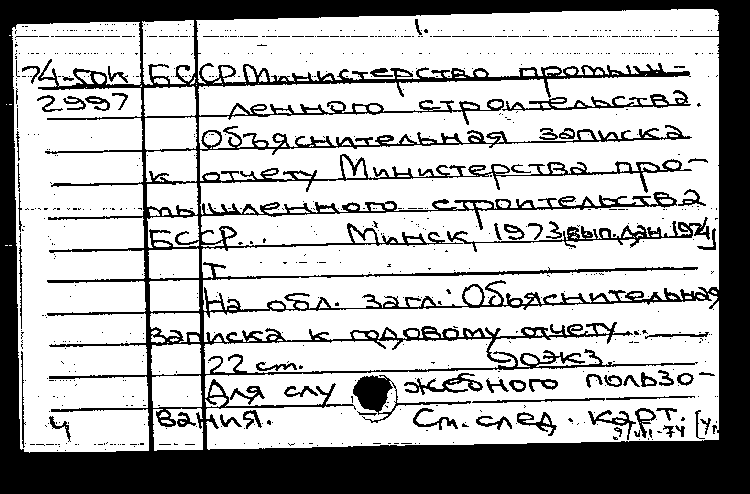 1.
74-60к БССР Министерство промыш-
2997 ленного строительства.
Объяснительная записка
к отчету Министерства про-
мышленного строительства
БССР... Минск, 1973 [вып. дан. 1974]
т.
На обл. загл.: Объяснительная
записка к годовому отчету...
22 см. 90экз.
Для служебного пользо-
ч вания. См. след. карт.